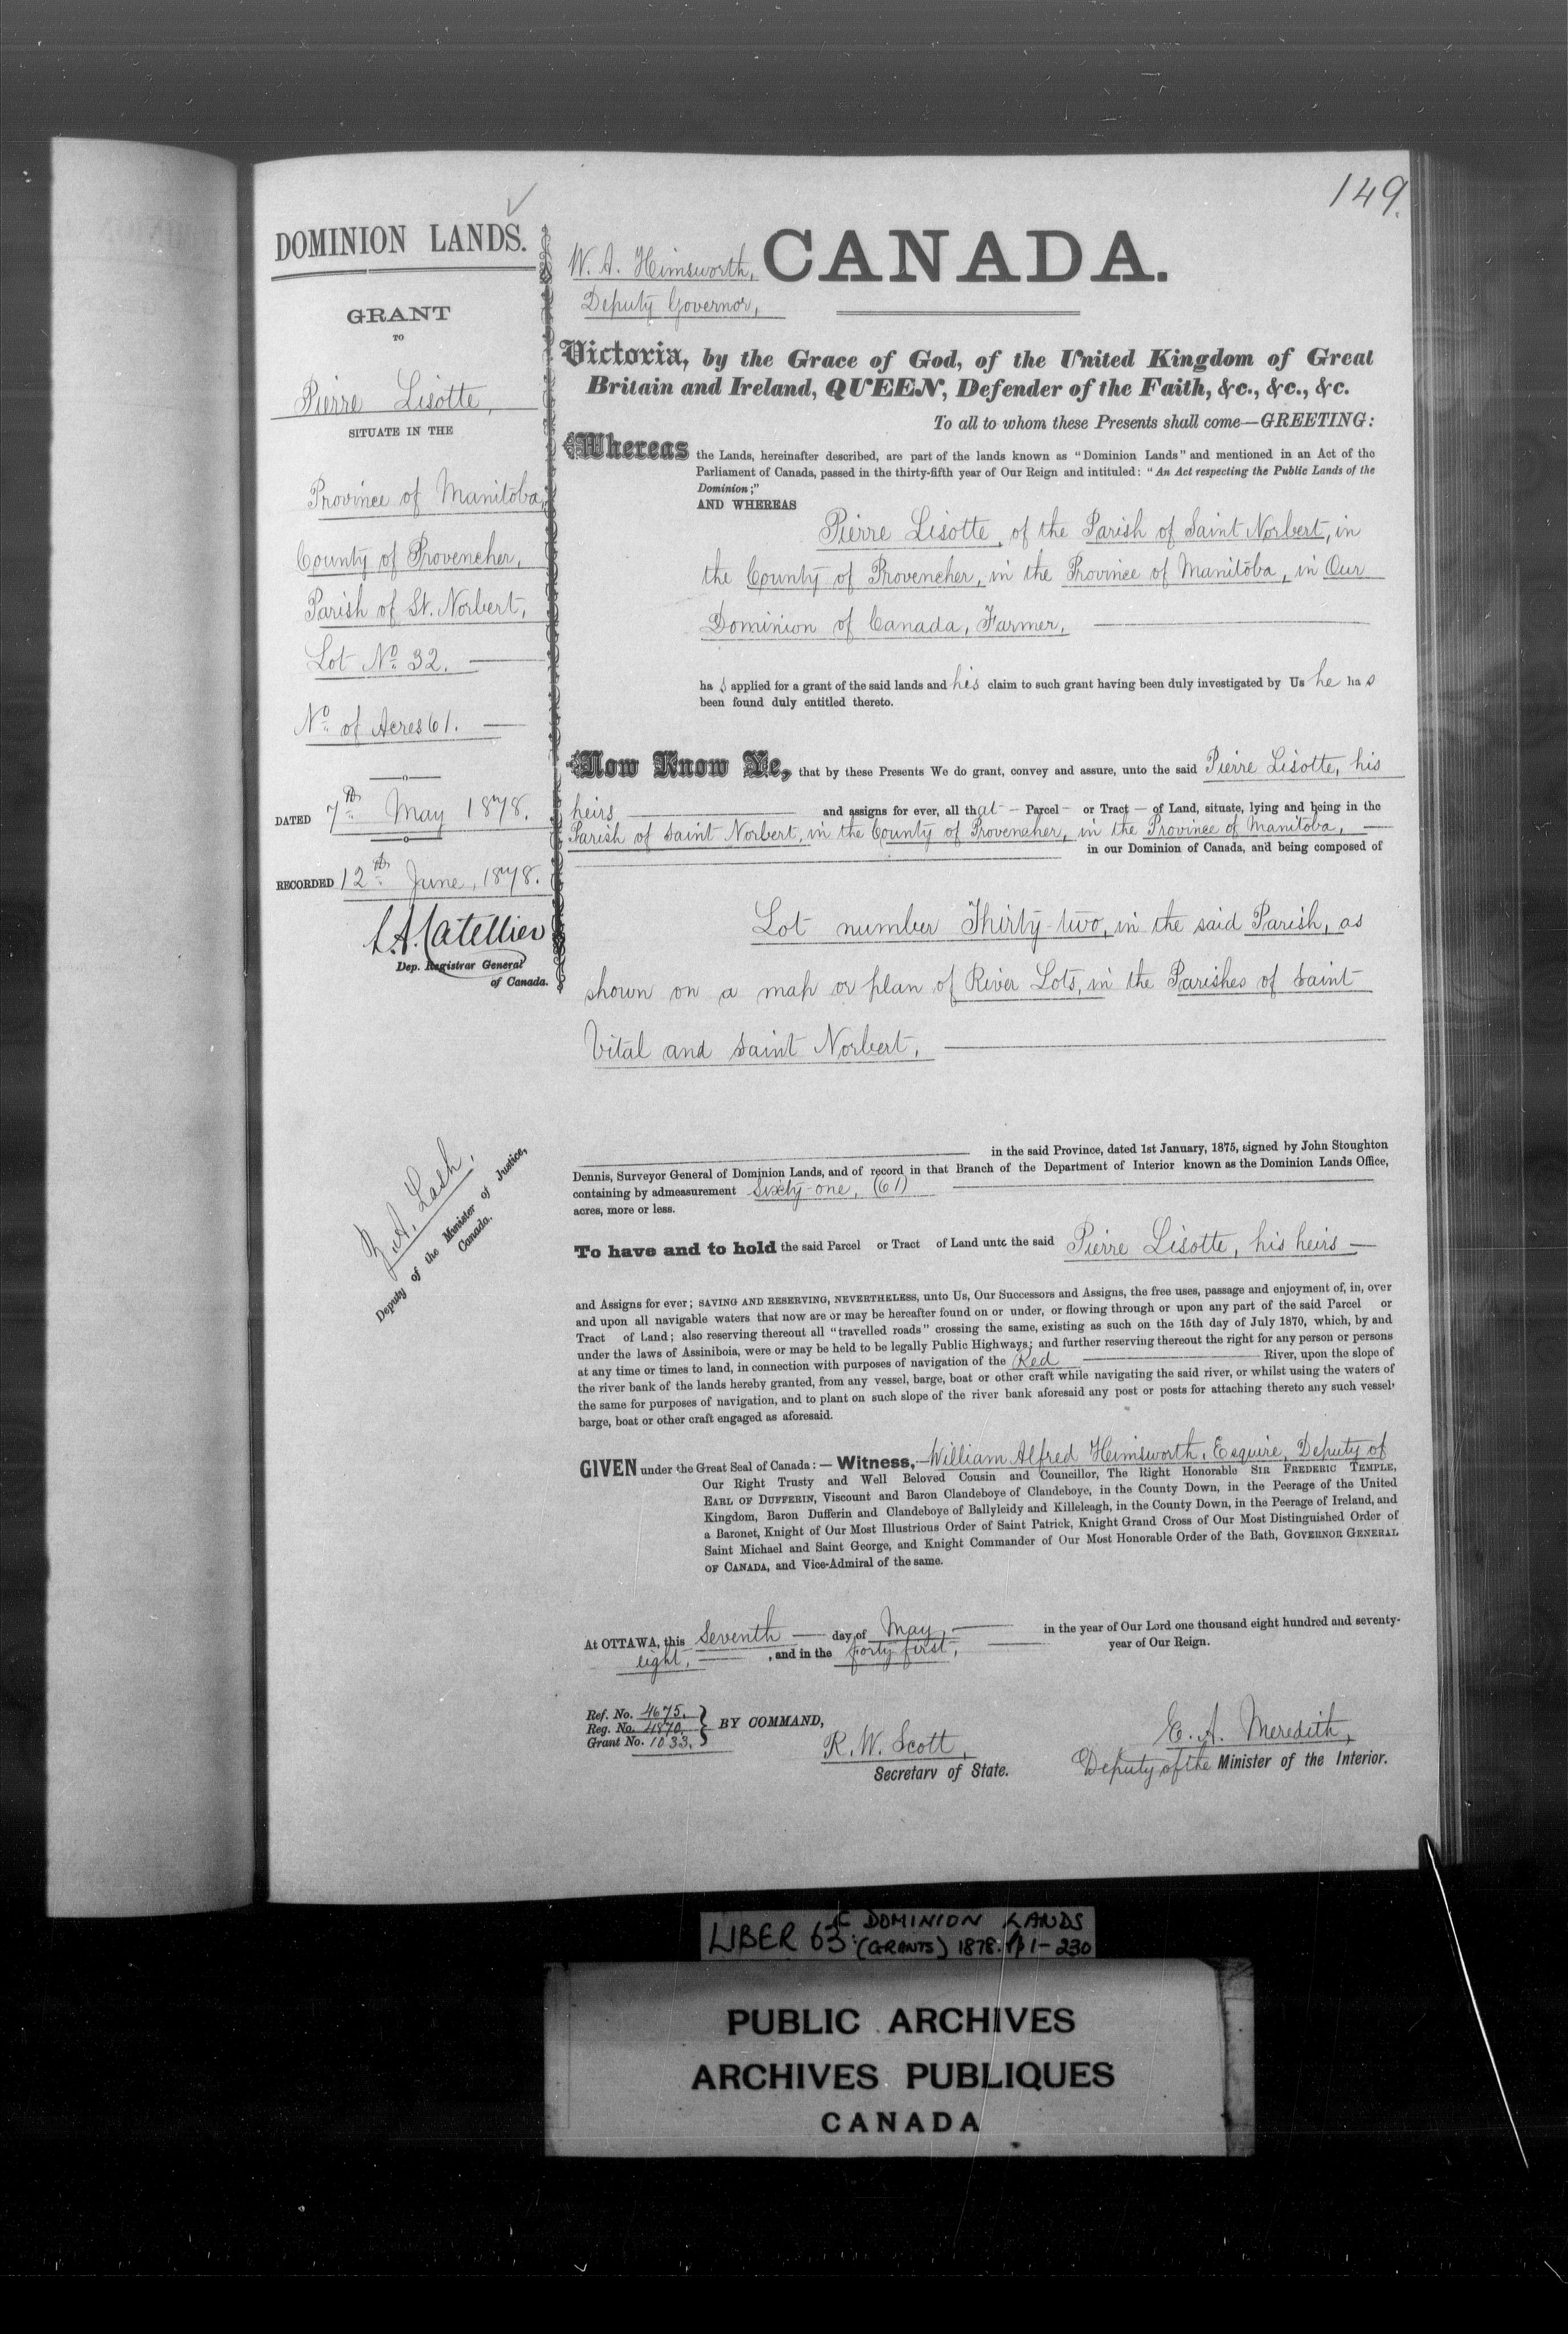 149.
DOMINION LANDS.
GRANT
TO
Pierre Lisotte,
SITUATE IN THE
Province of Manitoba,
County of Provencher,
Parish of St. Norbert,
Lot No. 32.
No. of Acres 61.
DATED 7th May 1878.
RECORDED 12th June, 1878.
L. A. Catellier
Dep. Registrar General
of Canada.
Z. A. Lash,
Deputy of the Minister of Justice,
Canada.
W. A. Himsworth,
Deputy Governor,
CANADA.
Victoria, by the Grace of God, of the United Kingdom of Great
Britain and Ireland, QUEEN, Defender of the Faith, &c., &c., &c.
To all to whom these Presents shall come—GREETING:
Whereas the Lands, hereinafter described, are part of the lands known as "Dominion Lands" and mentioned in an Act of the
Parliament of Canada, passed in the thirty-fifth year of Our Reign and intituled: "An Act respecting the Public Lands of the
Dominion;"
AND WHEREAS
Pierre Lisotte, of the Parish of Saint Norbert, in
the County of Provencher, in the Province of Manitoba, in Our
Dominion of Canada, Farmer,
has applied for a grant of the said lands and his claim to such grant having been duly investigated by Us he has
been found duly entitled thereto.
Now Know Ye, that by these Presents We do grant, convey and assure, unto the said Pierre Lisotte, his
heirs and assigns for ever, all that — Parcel — or Tract — of Land, situate, lying and being in the
Parish of Saint Norbert, in the County of Provencher, in the Province of Manitoba,
in our Dominion of Canada, and being composed of
Lot number Thirty-two, in the said Parish, as
shown on a map or plan of River Lots, in the Parishes of Saint
Vital and Saint Norbert,
in the said Province, dated 1st January, 1875, signed by John Stoughton
Dennis, Surveyor General of Dominion Lands, and of record in that Branch of the Department of Interior known as the Dominion Lands Office,
containing by admeasurement Sixty-one, (61)
acres, more or less.
To have and to hold the said Parcel or Tract of Land unto the said Pierre Lisotte, his heirs
and Assigns for ever; SAVING AND RESERVING, NEVERTHELESS, unto Us, Our Successors and Assigns, the free uses, passage and enjoyment of, in, over
and upon all navigable waters that now are or may be hereafter found on or under, or flowing through or upon any part of the said Parcel or
Tract of Land; also reserving thereout all "travelled roads" crossing the same, existing as such on the 15th day of July 1870, which, by and
under the laws of Assiniboia, were or may be held to be legally Public Highways; and further reserving thereout the right for any person or persons
at any time or times to land, in connection with purposes of navigation of the Red River, upon the slope of
the river bank of the lands hereby granted, from any vessel, barge, boat or other craft while navigating the said river, or whilst using the waters of
the same for purposes of navigation, and to plant on such slope of the river bank aforesaid any post or posts for attaching thereto any such vessel,
barge, boat or other craft engaged as aforesaid.
GIVEN under the Great Seal of Canada:—Witness, William Alfred Himsworth, Esquire, Deputy of
Our Right Trusty and Well Beloved Cousin and Councillor, The Right Honorable SIR FREDERIC TEMPLE,
EARL OF DUFFERIN, Viscount and Baron Clandeboye of Clandeboye, in the County Down, in the Peerage of the United
Kingdom, Baron Dufferin and Clandeboye of Ballyleidy and Killeleagh, in the County Down, in the Peerage of Ireland, and
a Baronet, Knight of Our Most Illustrious Order of Saint Patrick, Knight Grand Cross of Our Most Distinguished Order of
Saint Michael and Saint George, and Knight Commander of Our Most Honorable Order of the Bath, GOVERNOR GENERAL
OF CANADA, and Vice-Admiral of the same.
At OTTAWA, this Seventh day of May, in the year of Our Lord one thousand eight hundred and seventy-
eight, , and in the forty first, year of Our Reign.
Ref. No. 4675.
Reg. No. 4870.
Grant No. 1033.
BY COMMAND,
R. W. Scott,
Secretary of State.
E. A. Meredith,
Deputy of the Minister of the Interior.
LIBER 63C: DOMINION LANDS
(GRANTS) 1878. pp 1-230
PUBLIC ARCHIVES
ARCHIVES PUBLIQUES
CANADA